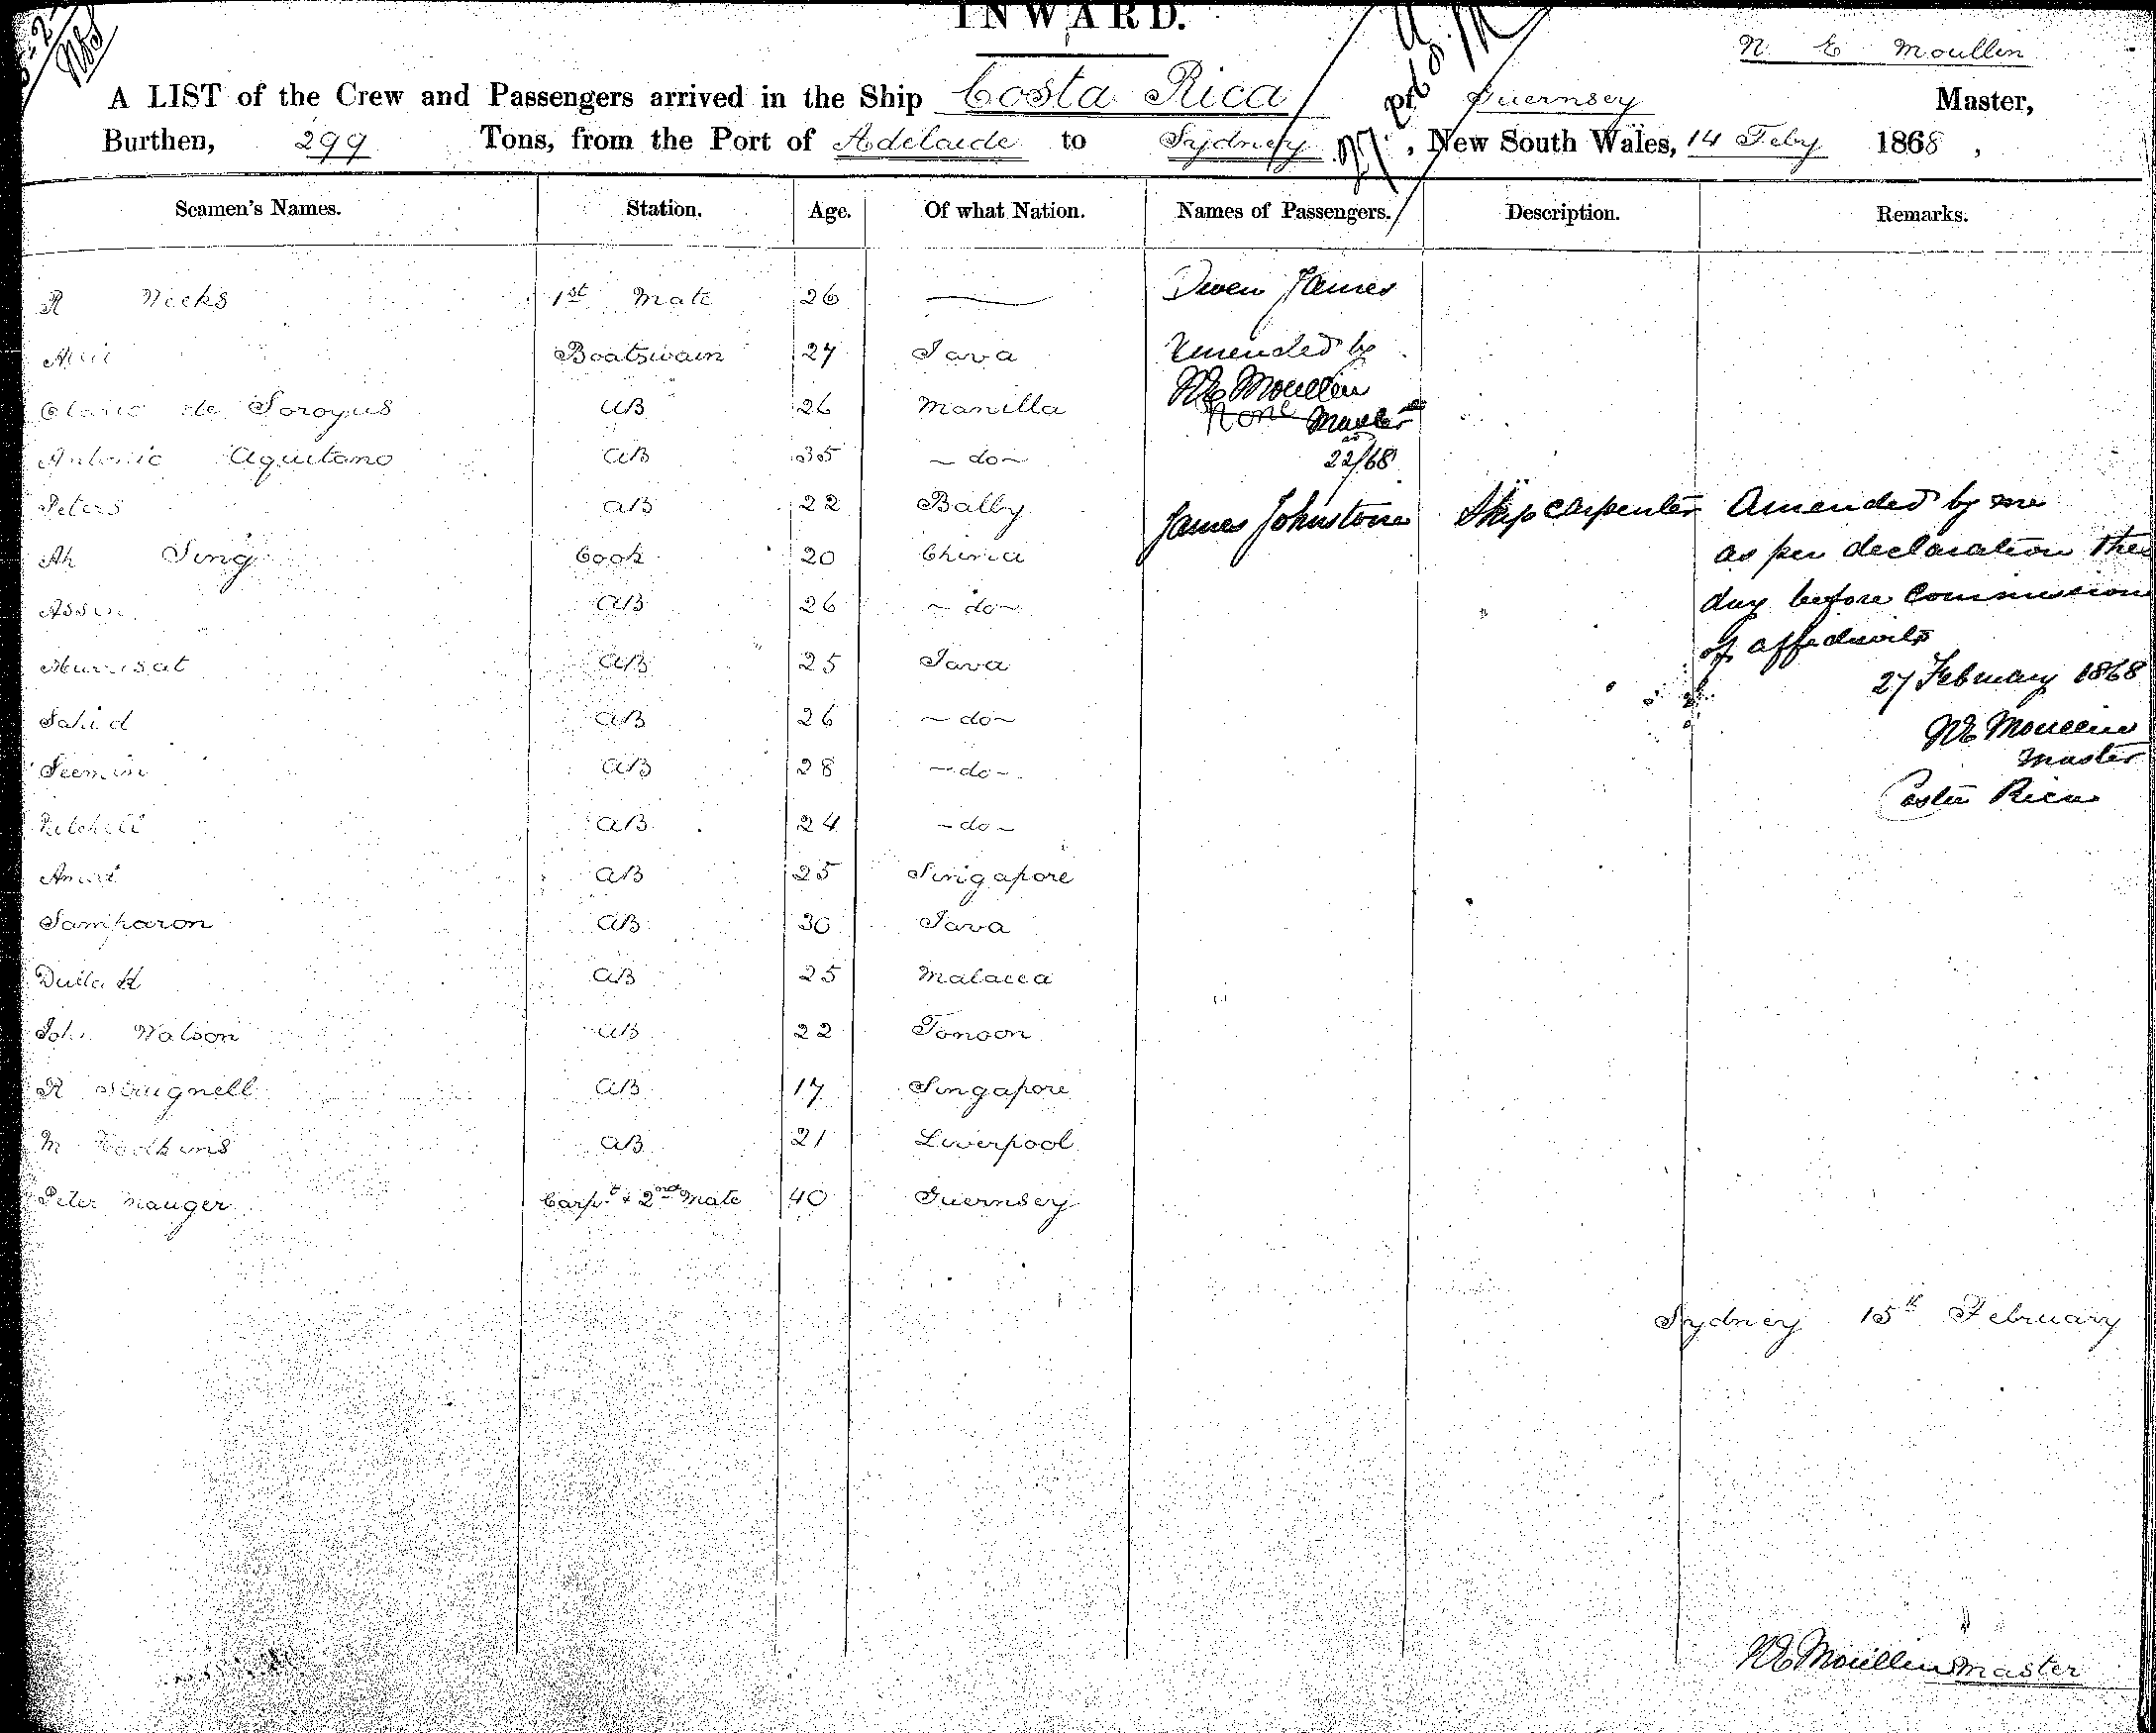 INWARD.
N. E Moullin
A LIST of the Crew and Passengers arrived in the Ship Costa Rica Guernsey Master,
Burthen, 299 Tons, from the Port of Adelaide to Sydney, New South Wales, 14 Feby 1868,
Seamen's Names. Station. Age. Of what Nation. Names of Passengers. Description. Remarks.
R 1st Mate 26 — Owen James
Boatswain 27 Java Amended by
NE Moullin
de Soroyus AB 26 Manilla None Master
Antonio Aquitano AB 35 - do - 22/68
Peters AB 22 Bally James Johnstone Ship Carpenter Amended by me
Ah Sing Cook 20 China as per declaration this
Assin AB 26 - do - day before Commission
of affidavits
AB 25 Java 27 February 1868
Sahid AB 26 - do - NE Moullin
Master
Seemin AB 28 - do - Costa Rica
AB 24 - do -
AB 25 Singapore
Samparon AB 30 Java
AB 25 Malacca
John Watson AB 22
R Strugnell AB 17 Singapore
M AB 21 Liverpool
Peter Mauger Carpt & 2nd Mate 40 Guernsey
Sydney 15th February
NE Moullin Master